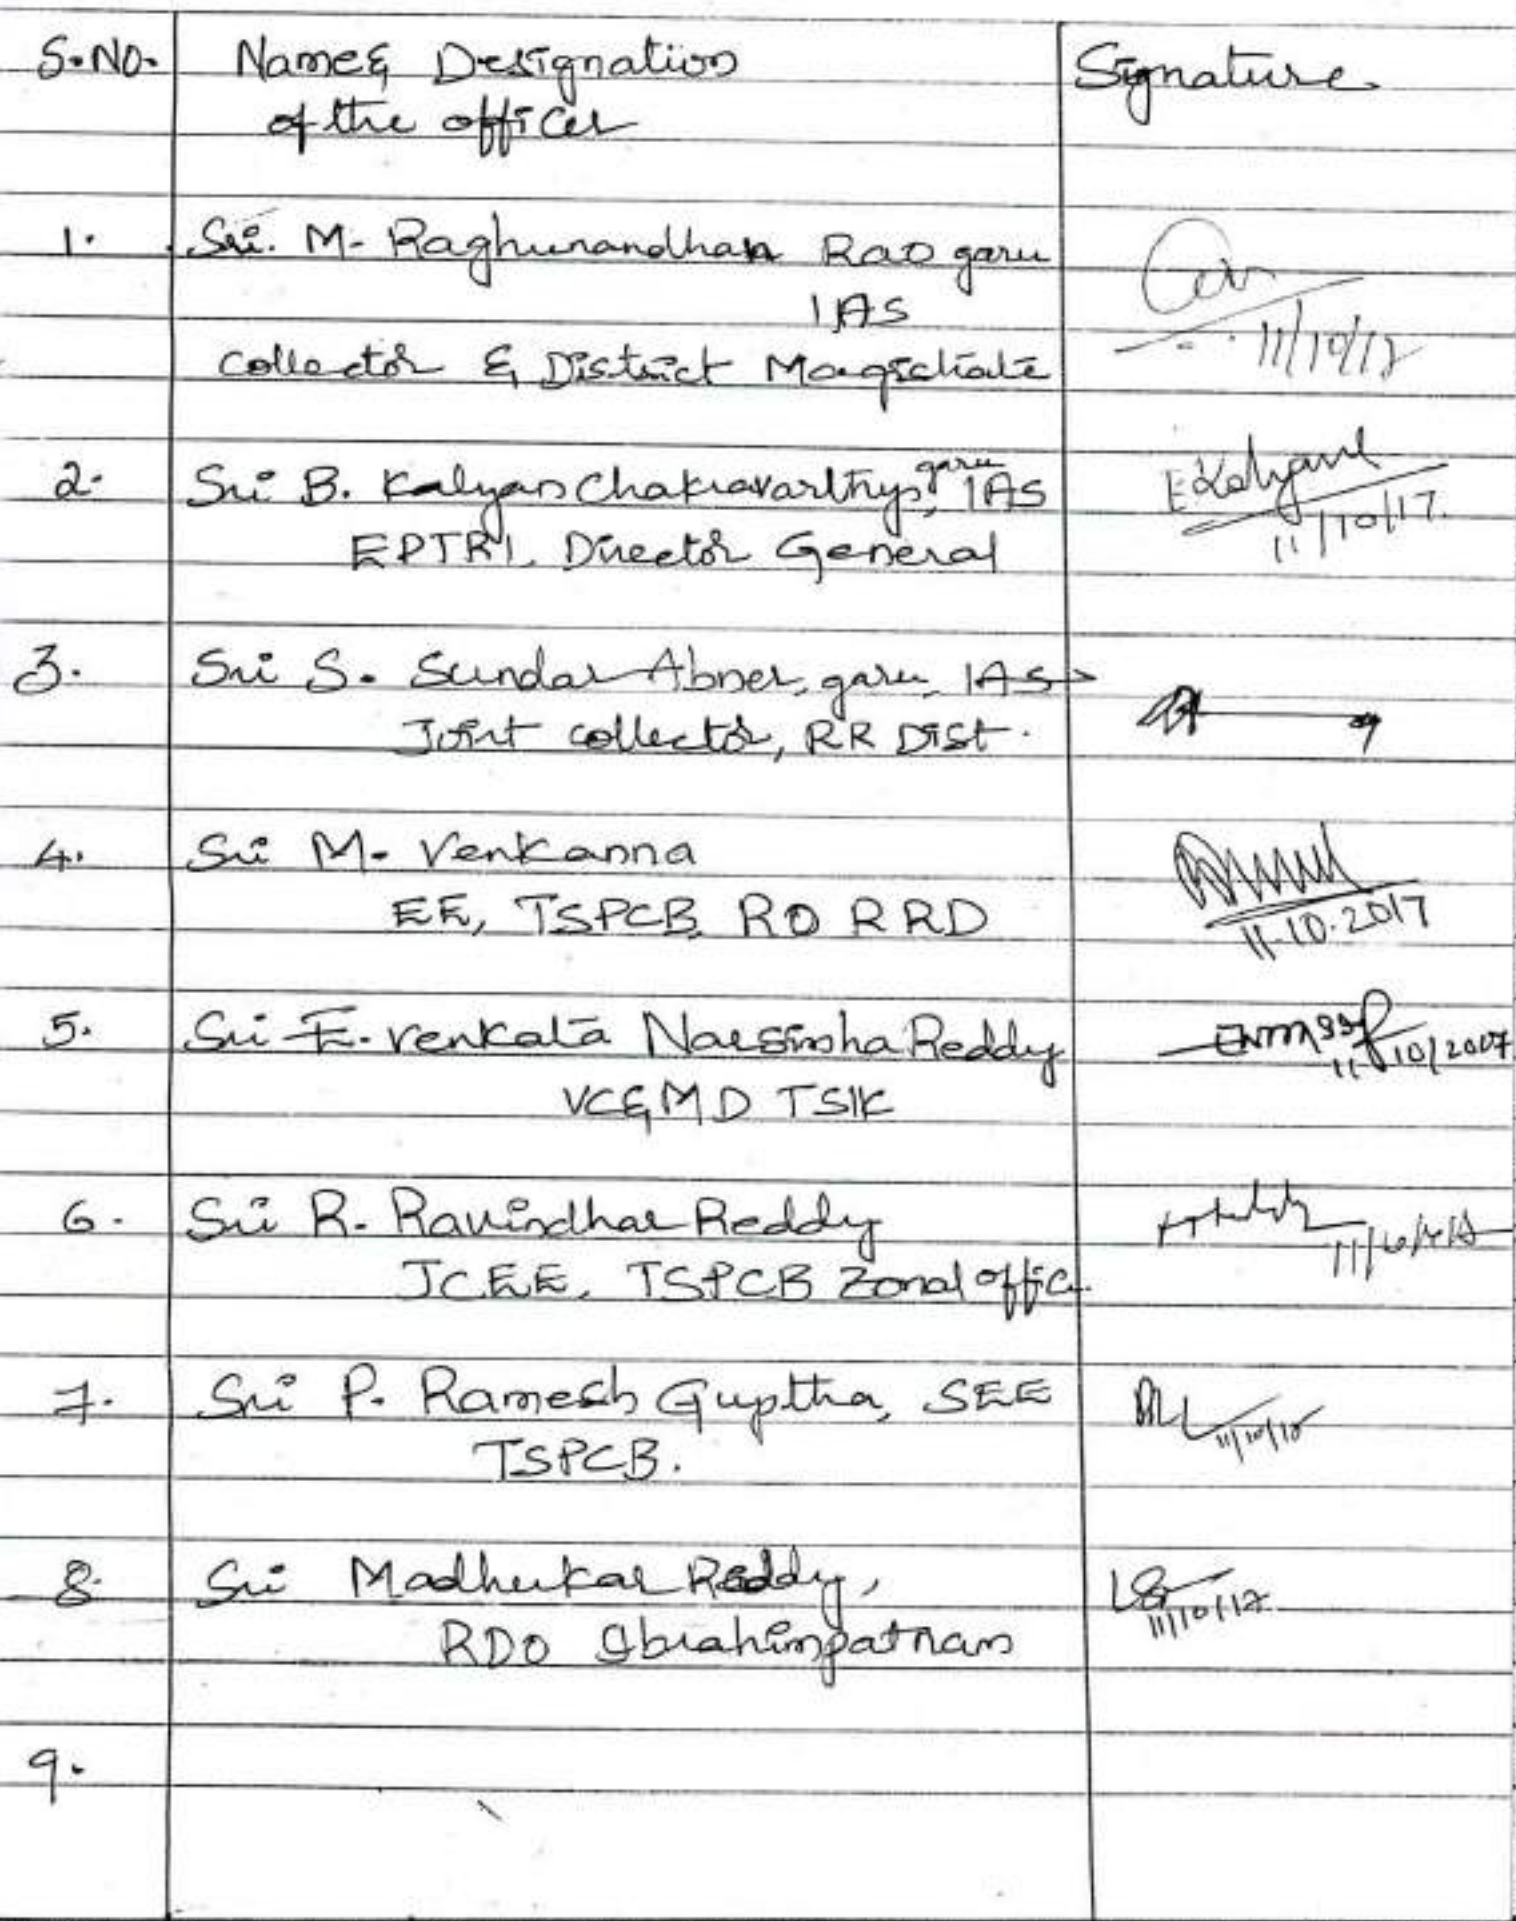 S.No. Name & Designation Signature
of the officer
1. Sri. M. Raghunandhan Rao garu
IAS
Collector & District Magistrate 11/10/17
2. Sri B. Kalyan Chakravarthy, garu IAS
EPTRI, Director General 11/10/17.
3. Sri S. Sundar Abner, garu, IAS
Joint collector, RR Dist.
4. Sri M. Venkanna
EE, TSPCB, RO RRD 11.10.2017
5. Sri E. Venkata Narsimha Reddy 11/10/2007
VC&MD TSIIC
6. Sri R. Ravindhar Reddy
JCEE, TSPCB Zonal office
7. Sri P. Ramesh Guptha, SEE
TSPCB. 11/10/17
8. Sri Madhukar Reddy, 11/10/17
RDO Ibrahimpatnam
9.